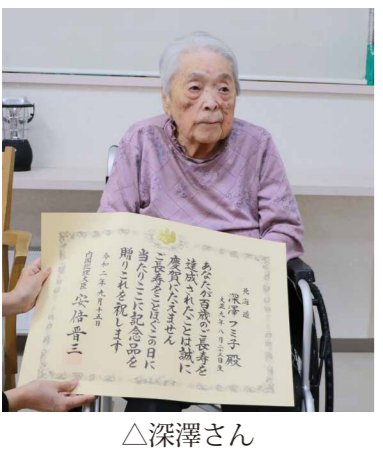 北海道
深澤フミ子 殿
大正九年八月二十三日生
あなたが百歳のご長寿を
達成されたことは誠に
慶賀にたえません
ご長寿をことほぐこの日に
当たりここに記念品を
贈りこれを祝します
令和二年九月十五日
内閣総理大臣 安倍晋三
△深澤さん